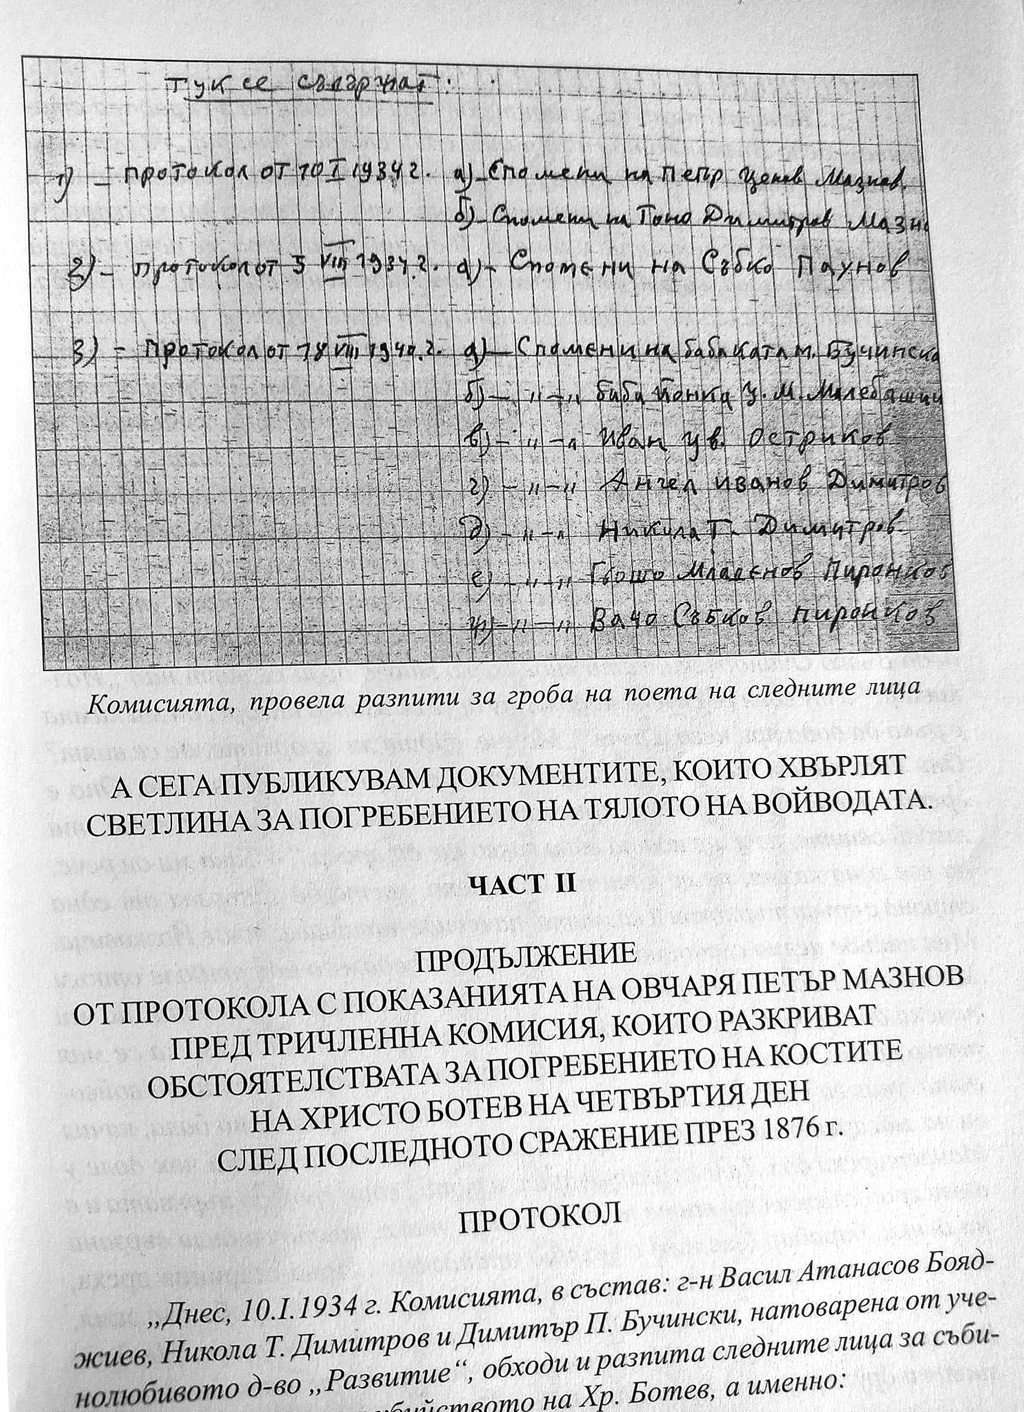 Тук се съдържат:
1) – Протокол от 10 I 1934 г. а) – Спомени на Петър Ценов Мазнов.
б) – Спомени на Тоно Димитров Мазно
2) – Протокол от 5 VIII 1934 г. а) – Спомени на Събко Паунов
3) – Протокол от 18 VIII 1940 г. а) – Спомени на баба Ката М. Бучинска
б) – " – " баба Йонка Ц. М.
в) – " – " Иван Цв. Остриков
г) – " – " Ангел Иванов Димитров
д) – " – " Никула Т. Димитров
е) – " – " Гьошо Младенов Пиронков
ж) – " – " Вачо Събков Пиронков
Комисията, провела разпити за гроба на поета на следните лица
А СЕГА ПУБЛИКУВАМ ДОКУМЕНТИТЕ, КОИТО ХВЪРЛЯТ
СВЕТЛИНА ЗА ПОГРЕБЕНИЕТО НА ТЯЛОТО НА ВОЙВОДАТА.
ЧАСТ II
ПРОДЪЛЖЕНИЕ
ОТ ПРОТОКОЛА С ПОКАЗАНИЯТА НА ОВЧАРЯ ПЕТЪР МАЗНОВ
ПРЕД ТРИЧЛЕННА КОМИСИЯ, КОИТО РАЗКРИВАТ
ОБСТОЯТЕЛСТВАТА ЗА ПОГРЕБЕНИЕТО НА КОСТИТЕ
НА ХРИСТО БОТЕВ НА ЧЕТВЪРТИЯ ДЕН
СЛЕД ПОСЛЕДНОТО СРАЖЕНИЕ ПРЕЗ 1876 г.
ПРОТОКОЛ
„Днес, 10.I.1934 г. Комисията, в състав: г-н Васил Атанасов Бояд-
жиев, Никола Т. Димитров и Димитър П. Бучински, натоварена от уче-
нолюбивото д-во „Развитие“, обходи и разпита следните лица за съби-
убийството на Хр. Ботев, а именно: